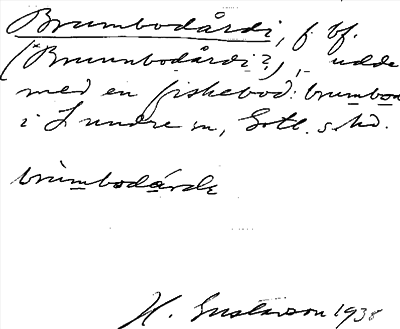 Brumbodårdi, f bf.
(*Brunnbodårdi?), udde
med en fiskebod: brumbon
i Sundre sn, Gotl. s. hd.
brùmbodárde
H. Gustavson 1938